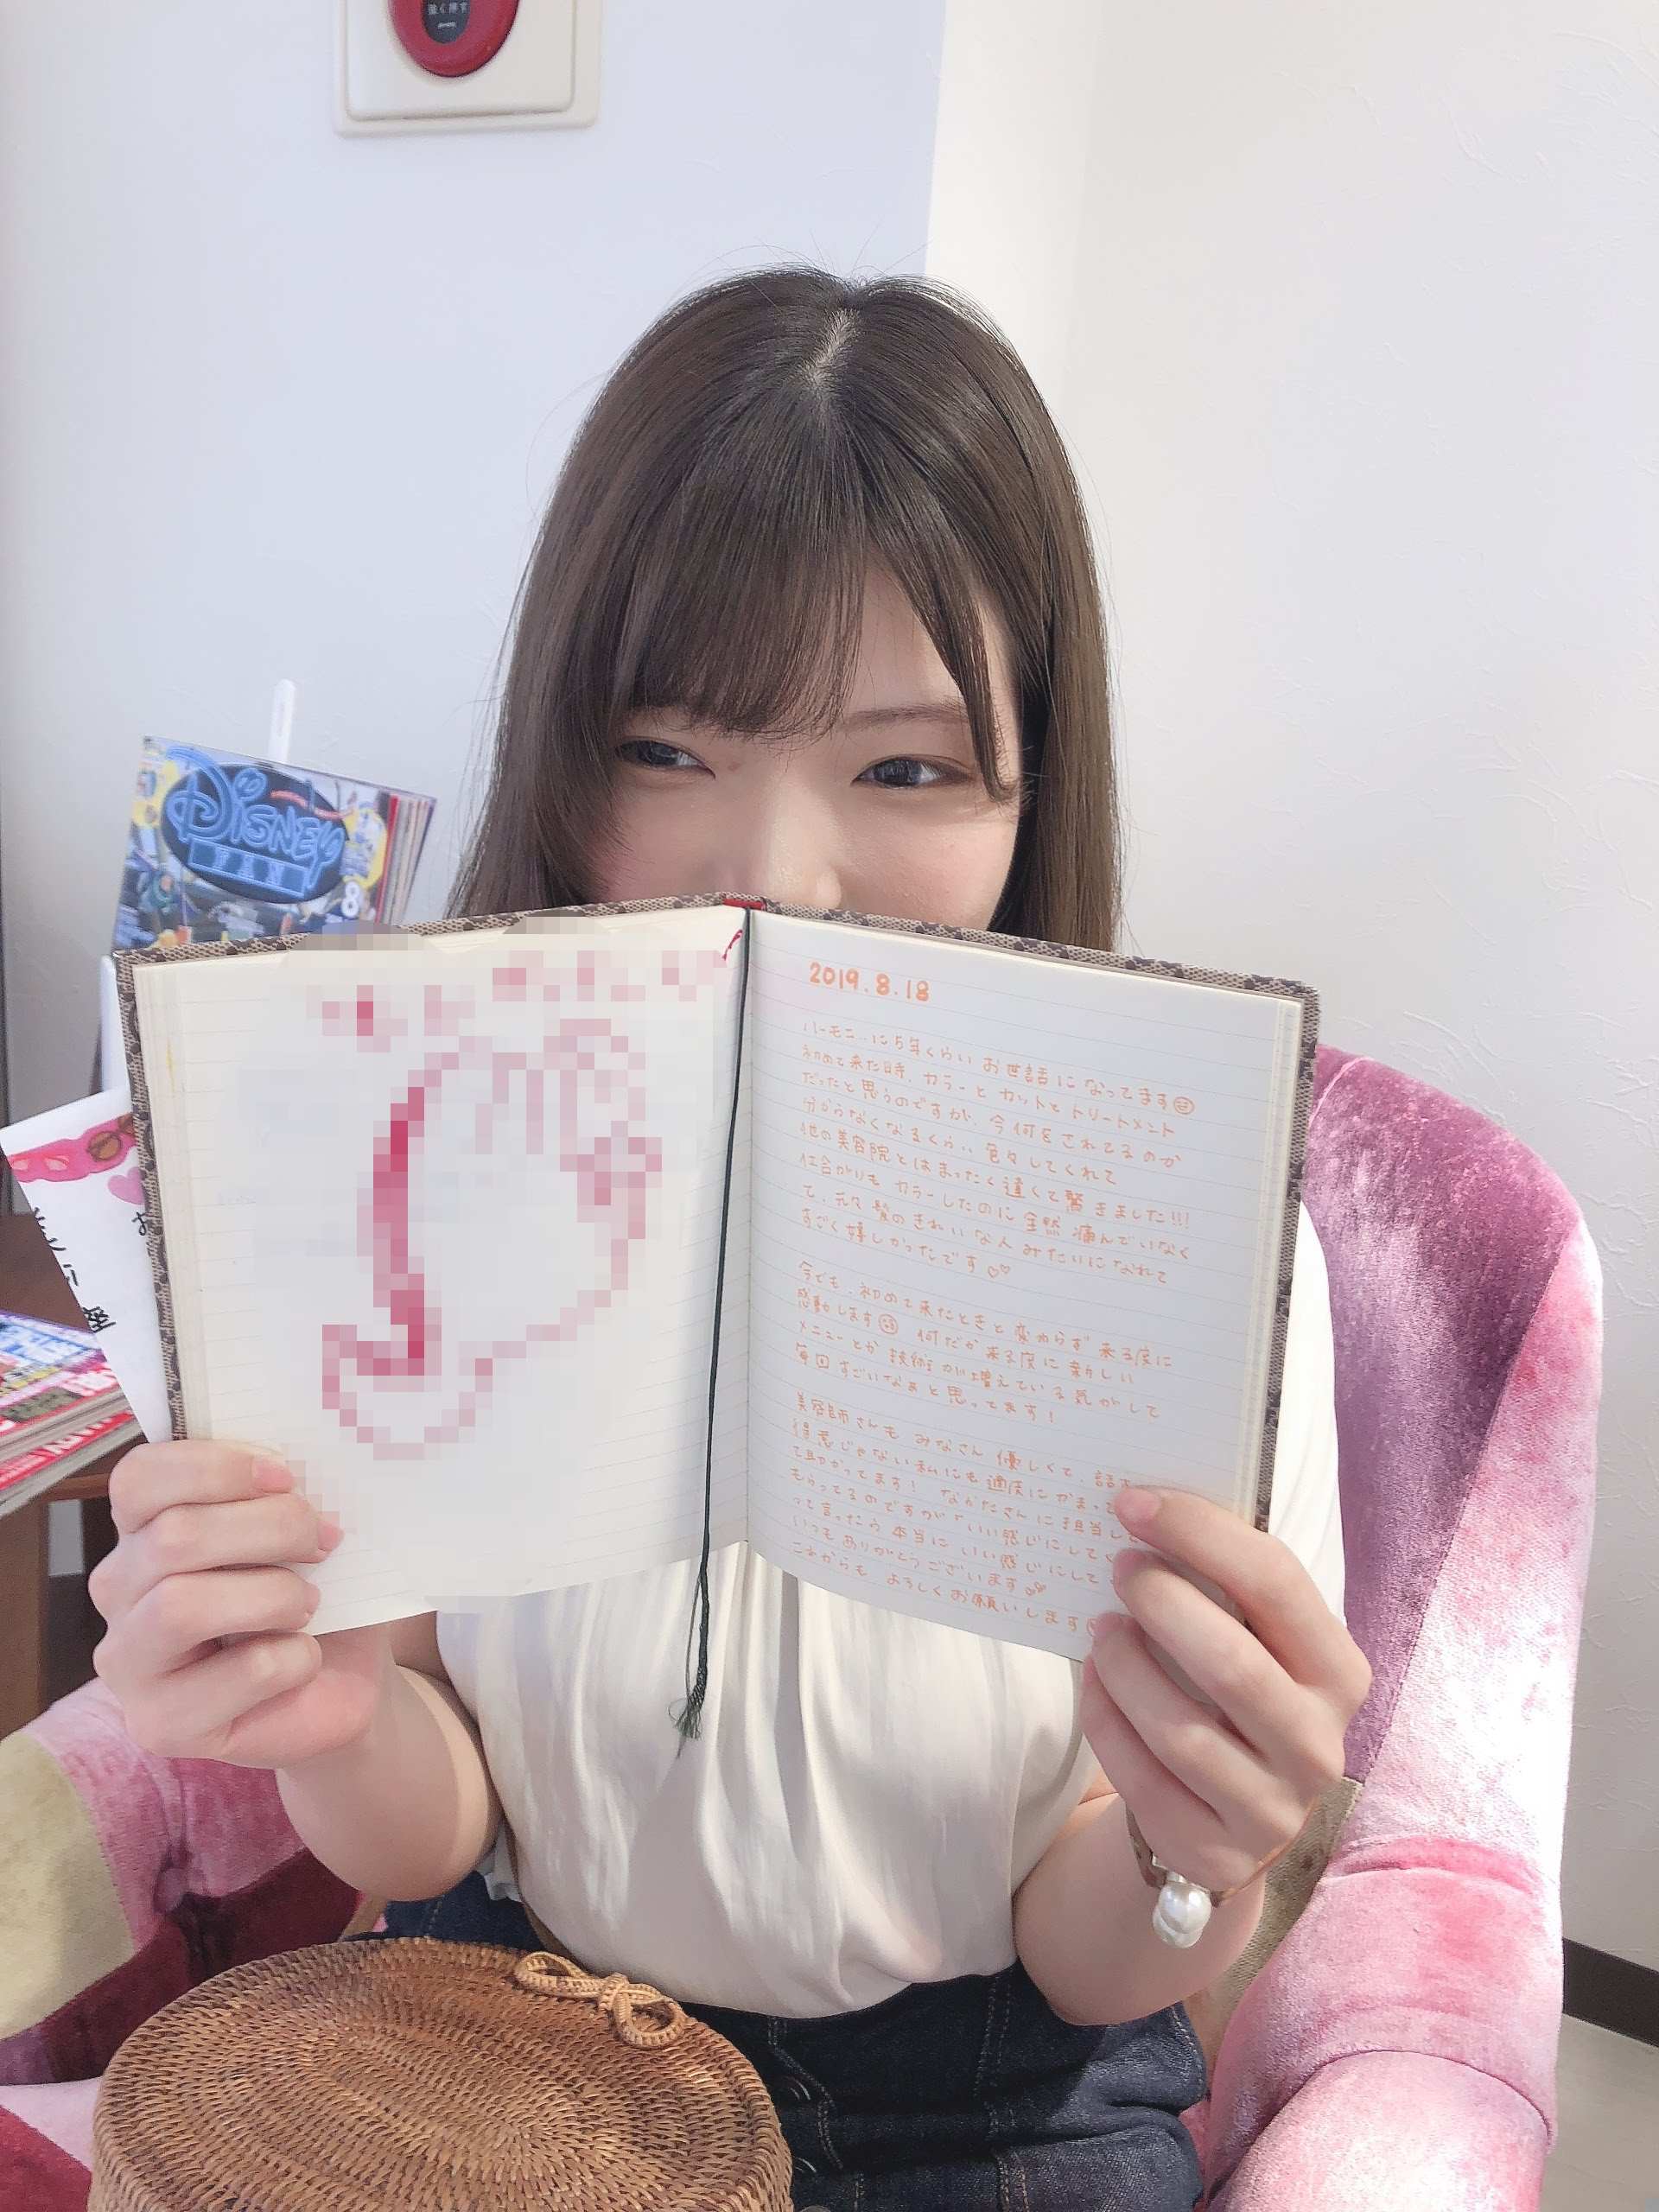 強く押す
Disney
FAN
8
2019.8.18
ハーモニーに5年くらい お世話に なってます
初めて来た時、カラーと カットと トリートメント
だったと思うのですが、今何をされてるのか
分からなくなるくらい 色々してくれて
他の美容院とは まったく違くて驚きました!!!
仕上がりも カラーしたのに 全然 痛んでいなく
て、元々 髪の きれいな人 みたいに なれて
すごく嬉しかったです♡♡
今でも、初めて来たときと 変わらず 来る度に
感動します 何だか 来る度に 新しい
メニューとか 技術が増えている気がして
毎回 すごいなぁと思ってます!
美容師さんも みなさん 優しくて、話す
得意じゃない私にも 適度に かまって
て助かってます! なかたさんに 担当して
もらってるのですが「いい感じにしてく
って言ったら 本当に いい感じにして
いつも ありがとうございます
これからも よろしく お願いします
お
座